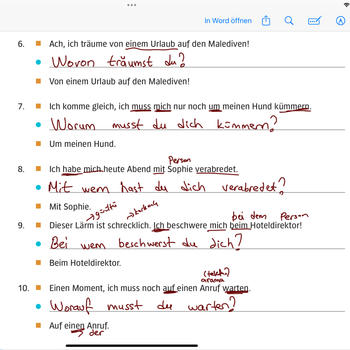 In Word öffnen
6. Ach, ich träume von einem Urlaub auf den Malediven!
Wovon träumst du?
Von einem Urlaub auf den Malediven!
7. Ich komme gleich, ich muss mich nur noch um meinen Hund kümmern.
Worum musst du dich kümmern?
Um meinen Hund.
Person
8. Ich habe mich heute Abend mit Sophie verabredet.
Mit wem hast du dich verabredet?
Mit Sophie.
bei dem Person
9. Dieser Lärm ist schrecklich. Ich beschwere mich beim Hoteldirektor!
Bei wem beschwerst du dich?
Beim Hoteldirektor.
10. Einen Moment, ich muss noch auf einen Anruf warten.
Worauf musst du warten?
Auf einen Anruf.
der